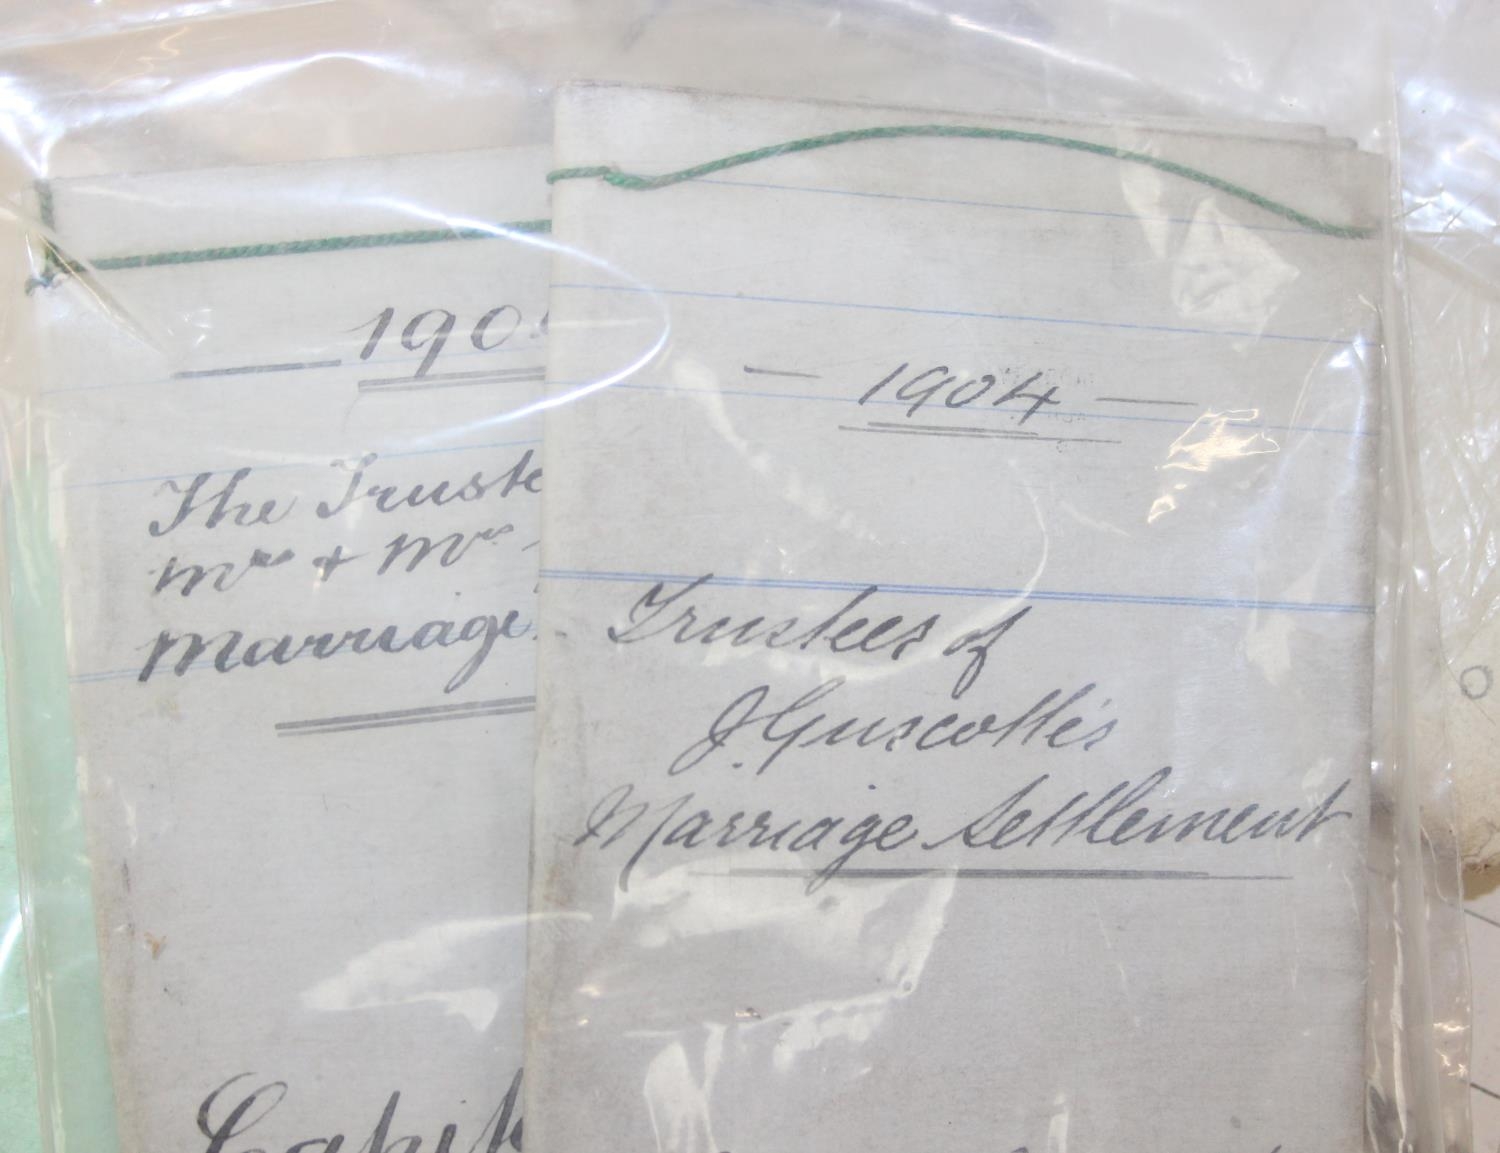 190
The Truste
Mr & Mrs
Marriage
Capit
1904
Trustees of
J. Guscotte's
Marriage Settlement